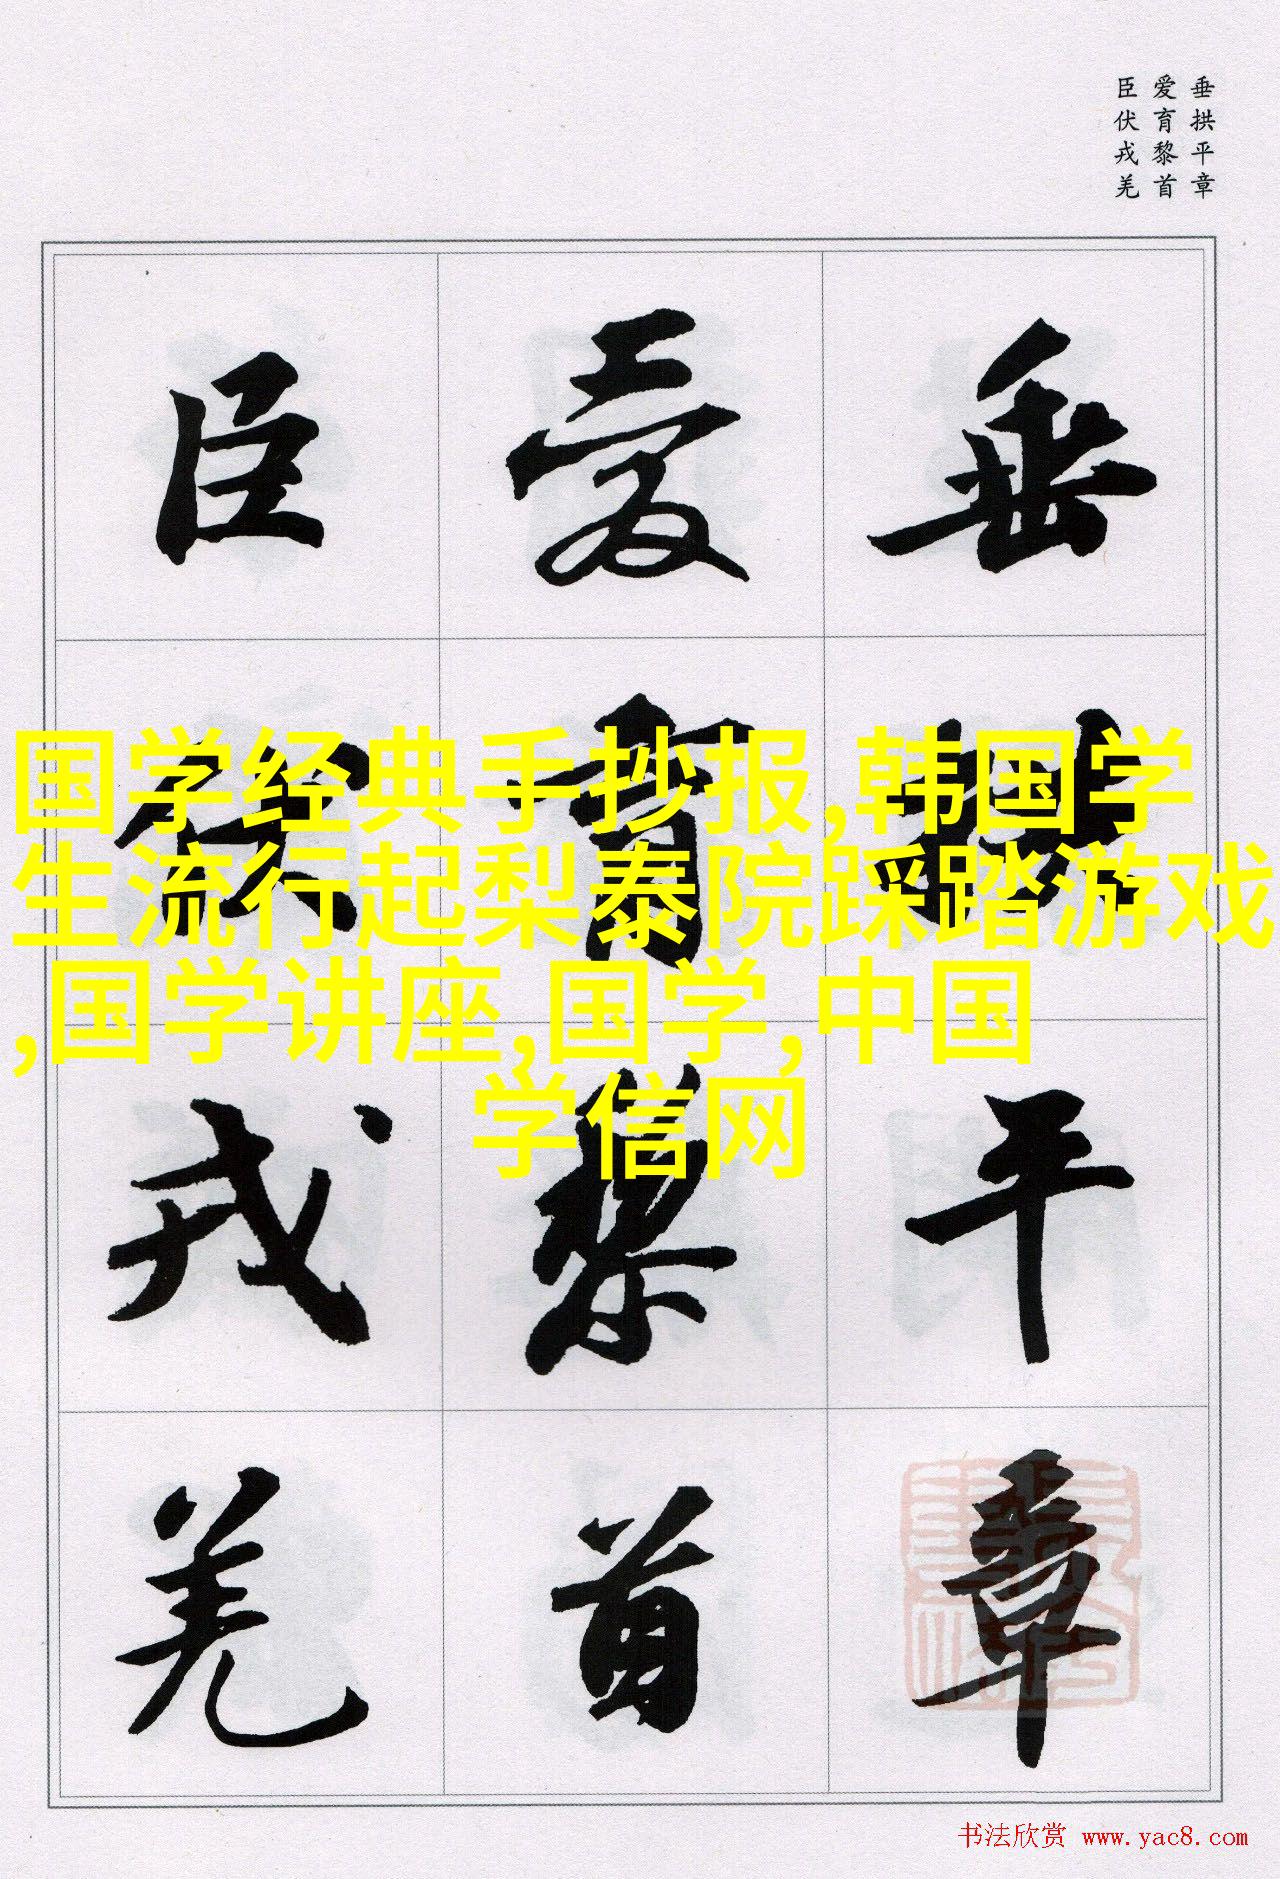 垂拱平章
爱育黎首
臣伏戎羌
垂拱平章
爱育黎首
臣伏戎羌
国学经典手抄报,韩国学
生流行起梨泰院踩踏游戏
,国学讲座,国学,中国
学信网
书法欣赏 www.yac8.com